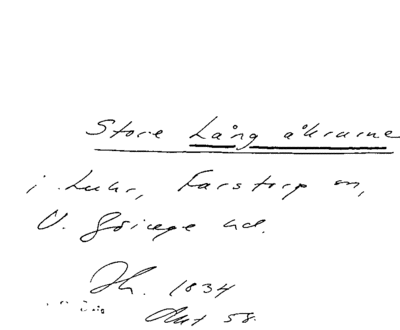 Store Lång åkrarne
i Luhr, Farstorp sn,
V. Göinge hd.
Jh. 1834
Akt 58.